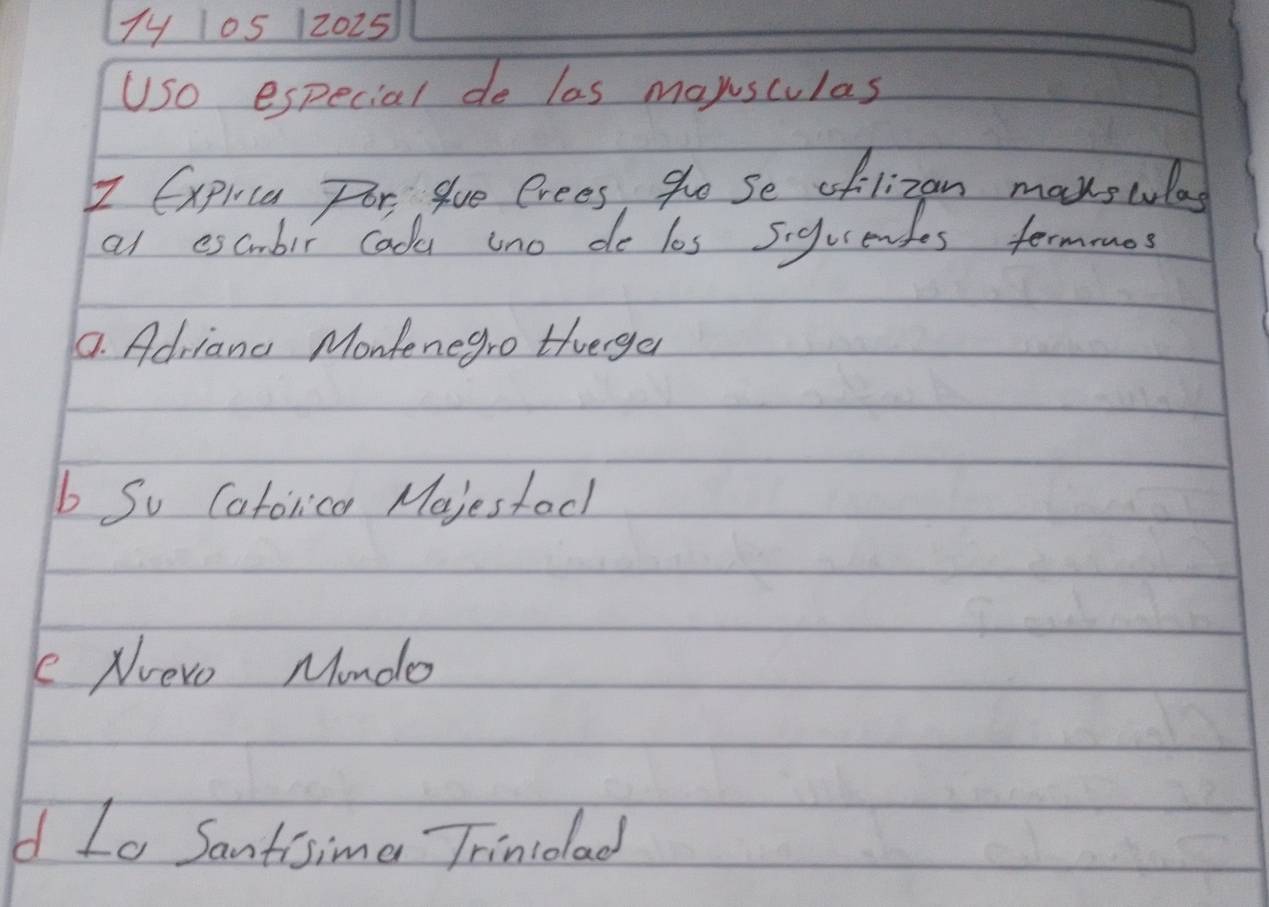 14 05 2025
Uso especial de las mayusculas
I Explica Por que Crees que se utilizan mayusculas
al escribir Cada uno de los Siguientes terminos
a. Adriana Montenegro Huerga
b Su Católica Majestad
c Nuevo Mundo
d La Santísima Trinidad